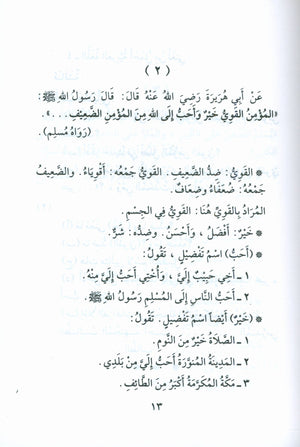 ( ٢ )
عَنْ أَبِي هُرَيرَةَ رَضِيَ اللهُ عَنْهُ قَالَ: قَالَ رَسُولُ اللهِ ﷺ:
«المُؤْمِنُ القَوِيُّ خَيْرٌ وَأَحَبُّ إِلَى اللهِ مِنَ المُؤْمِنِ الضَّعِيفِ ...».
(رَوَاهُ مُسْلِم).
* القَوِيُّ: ضِدُّ الضَّعِيفِ. القَوِيُّ جَمْعُهُ: أَقْوِيَاءُ. والضَّعِيفُ
جَمْعُهُ: ضُعَفَاءُ وضِعَافٌ.
المُرَادُ بِالقَوِيِّ هُنَا: القَوِيُّ فِي الجِسْمِ.
* خَيْرٌ: أَفْضَلُ، وَأَحْسَنُ. وضِدُّه: شَرٌّ.
* (أَحَبُّ) اسْمُ تَفْضِيلٍ، تَقُولُ:
١ ـ أَخِي حَبِيبٌ إِلَيَّ، وَأُخْتِي أَحَبُّ إِلَيَّ مِنْهُ.
٢ ـ أَحَبُّ النَّاسِ إِلَى المُسْلِمِ رَسُولُ اللهِ ﷺ.
* (خَيْرٌ) أَيْضاً اسْمُ تَفْضِيلٍ. تَقُولُ:
١ ـ الصَّلَاةُ خَيْرٌ مِنَ النَّومِ.
٢ ـ المَدِينَةُ المُنَوَّرَةُ أَحَبُّ إِلَيَّ مِنْ بَلَدِي.
٣ ـ مَكَّةُ المُكَرَّمَةُ أَكْبَرُ مِنَ الطَّائِفِ.
١٣